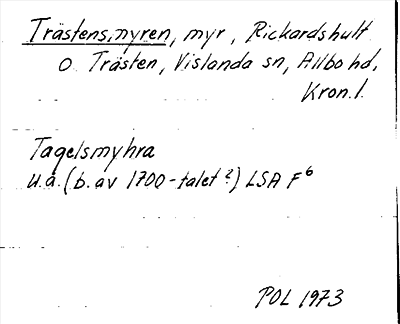 Trästensmyren, myr, Rickardshult
o. Trästen, Vislanda sn, Allbo hd,
Kron. l.
Tagelsmyhra
u.å. (b. av 1700-talet?) LSA F6
POL 1973